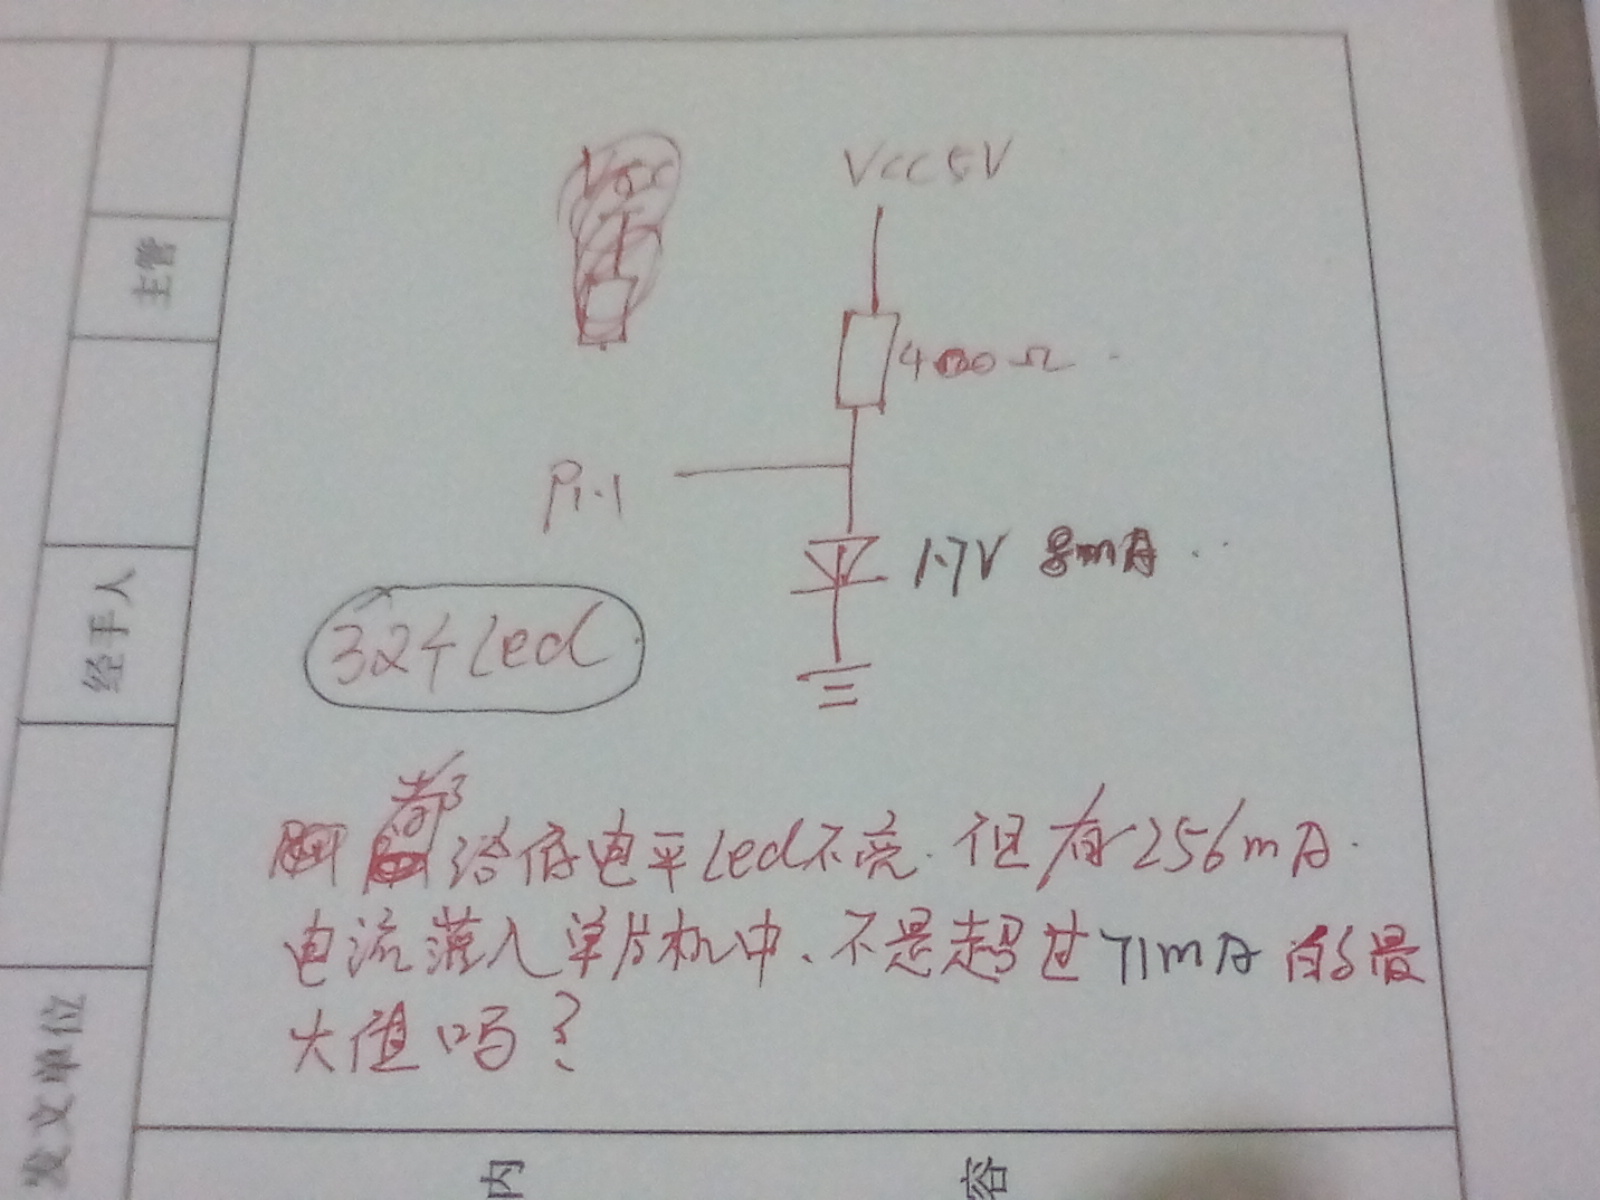 Vcc
Vcc5V
400Ω
P1.1
1.7V 8mA
32个Led
都
给低电平Led不亮.但有256mA.
电流灌入单片机中、不是超过71mA的最
大值吗？
主管
经手人
发文单位
内容